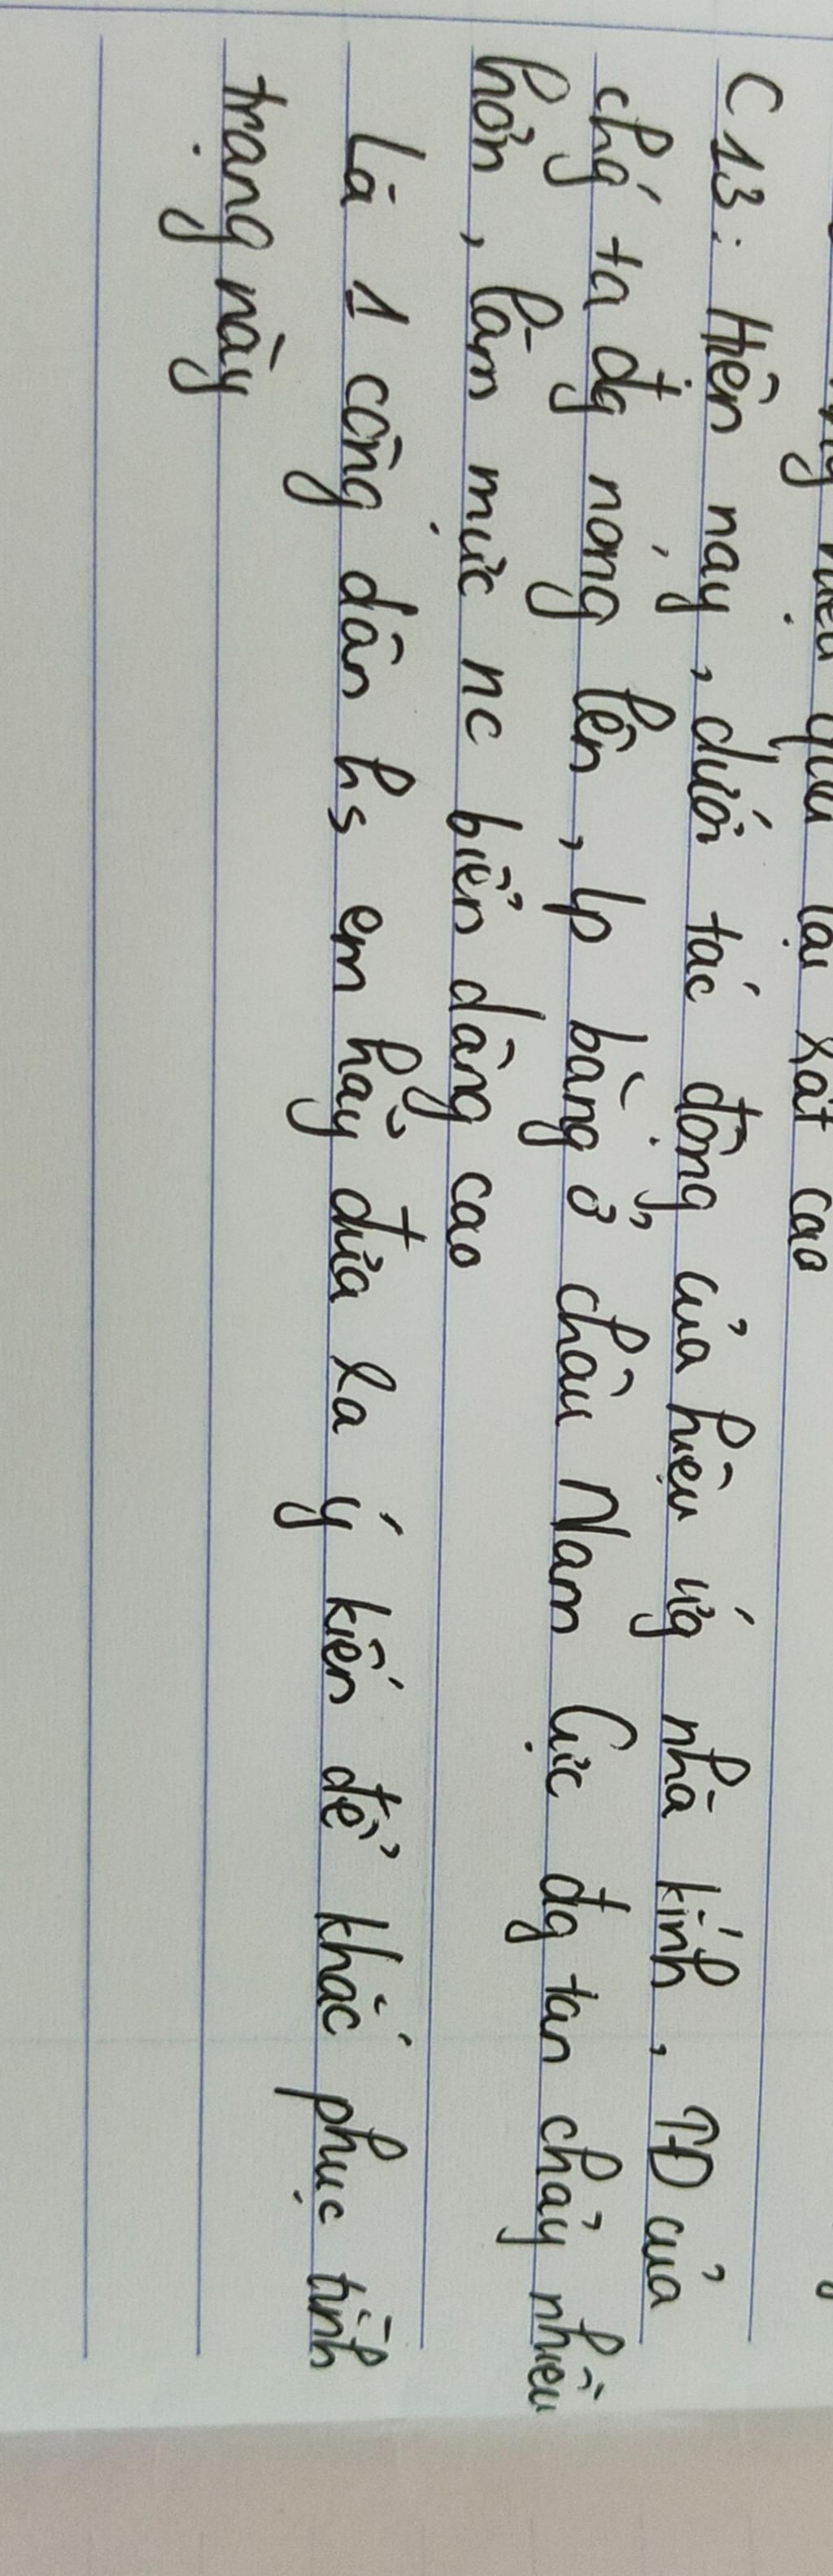 lại rất cao
C13: Hiện nay, dưới tác động của hiệu ứg nhà kính, TĐ của
chg´ ta đg nóng lên, lp băng ở châu Nam Cực đg tan chảy nhiều
hơn, làm mực nc biển dâng cao
Là 1 công dân hs em hãy đưa ra ý kiến để khắc phục tình
trạng này